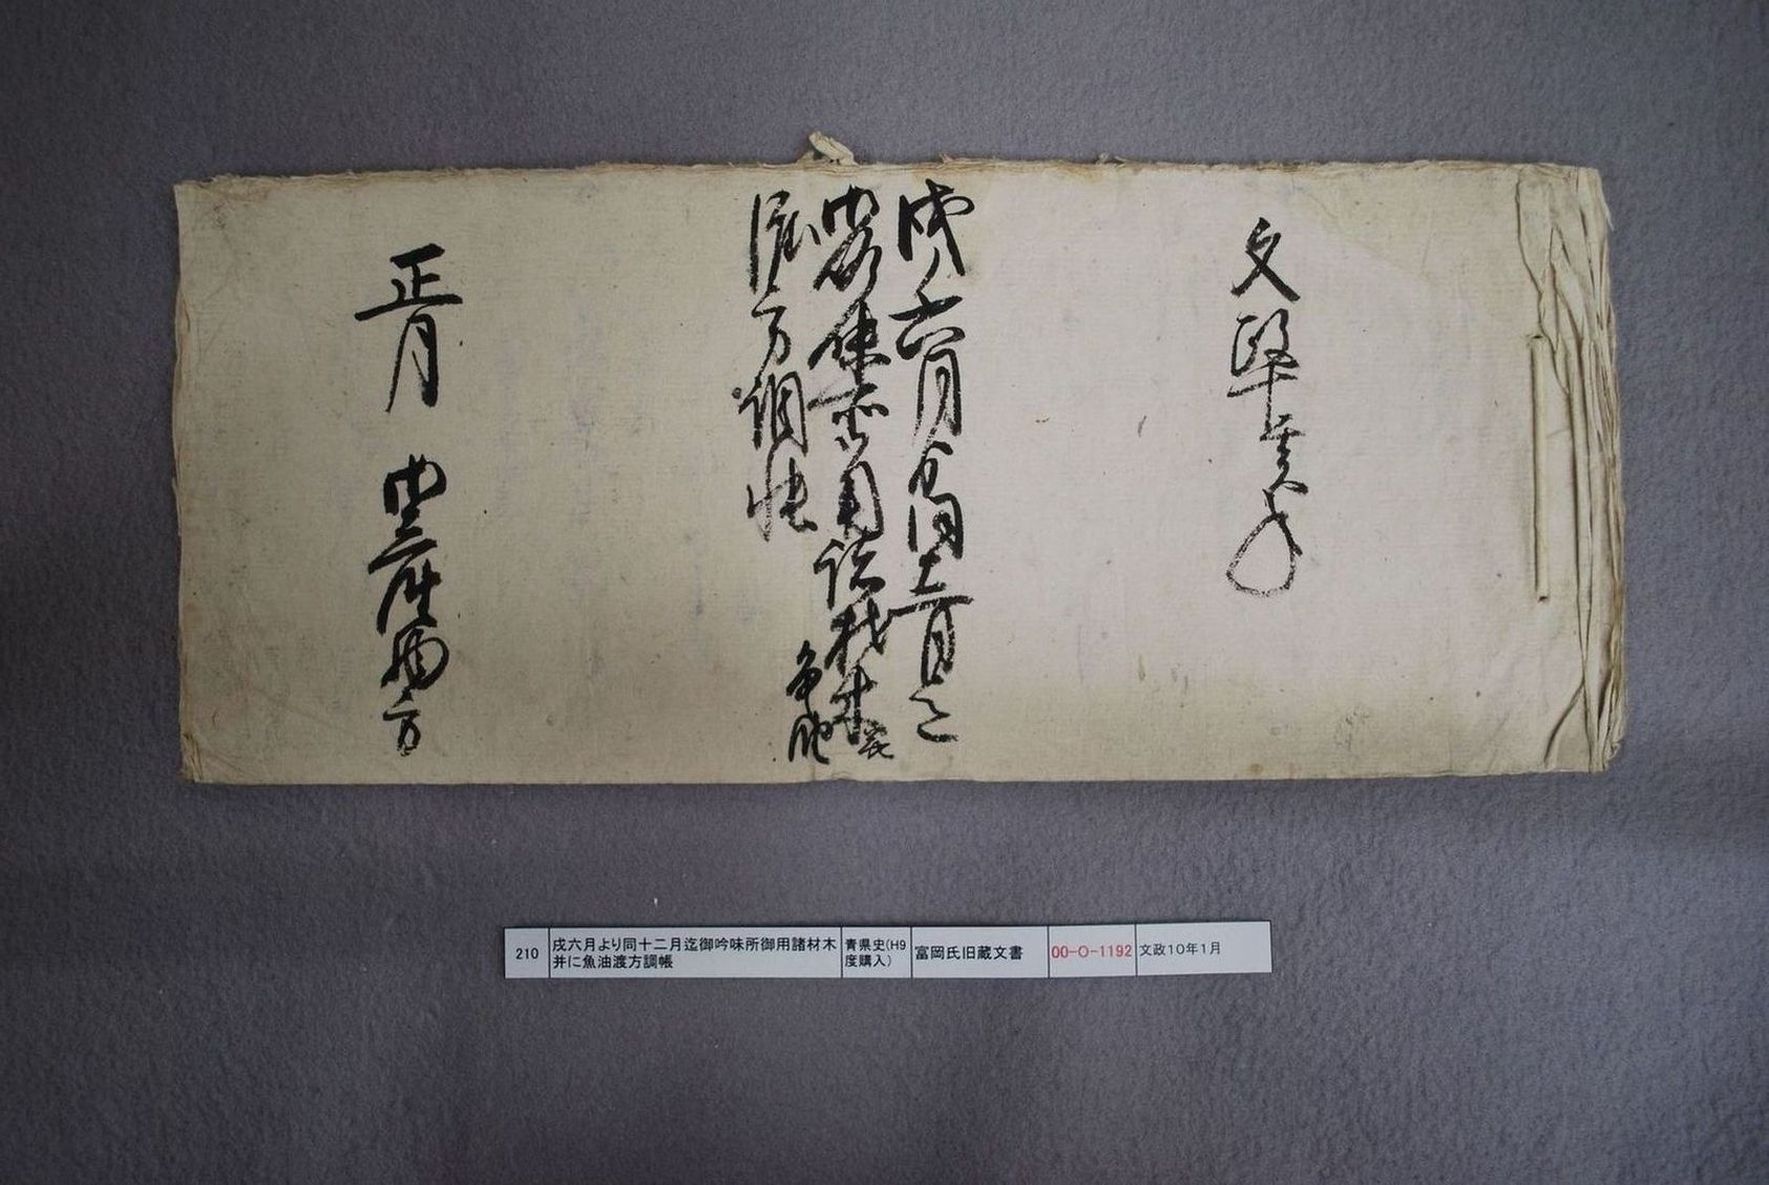 文政十亥年
戌六月ゟ同十二月迄
御吟味所御用諸材木并
魚油
渡方調帳
正月 御産物方
210
戌六月より同十二月迄御吟味所御用諸材木
并に魚油渡方調帳
青県史(H9
度購入)
富岡氏旧蔵文書
00-O-1192
文政10年1月